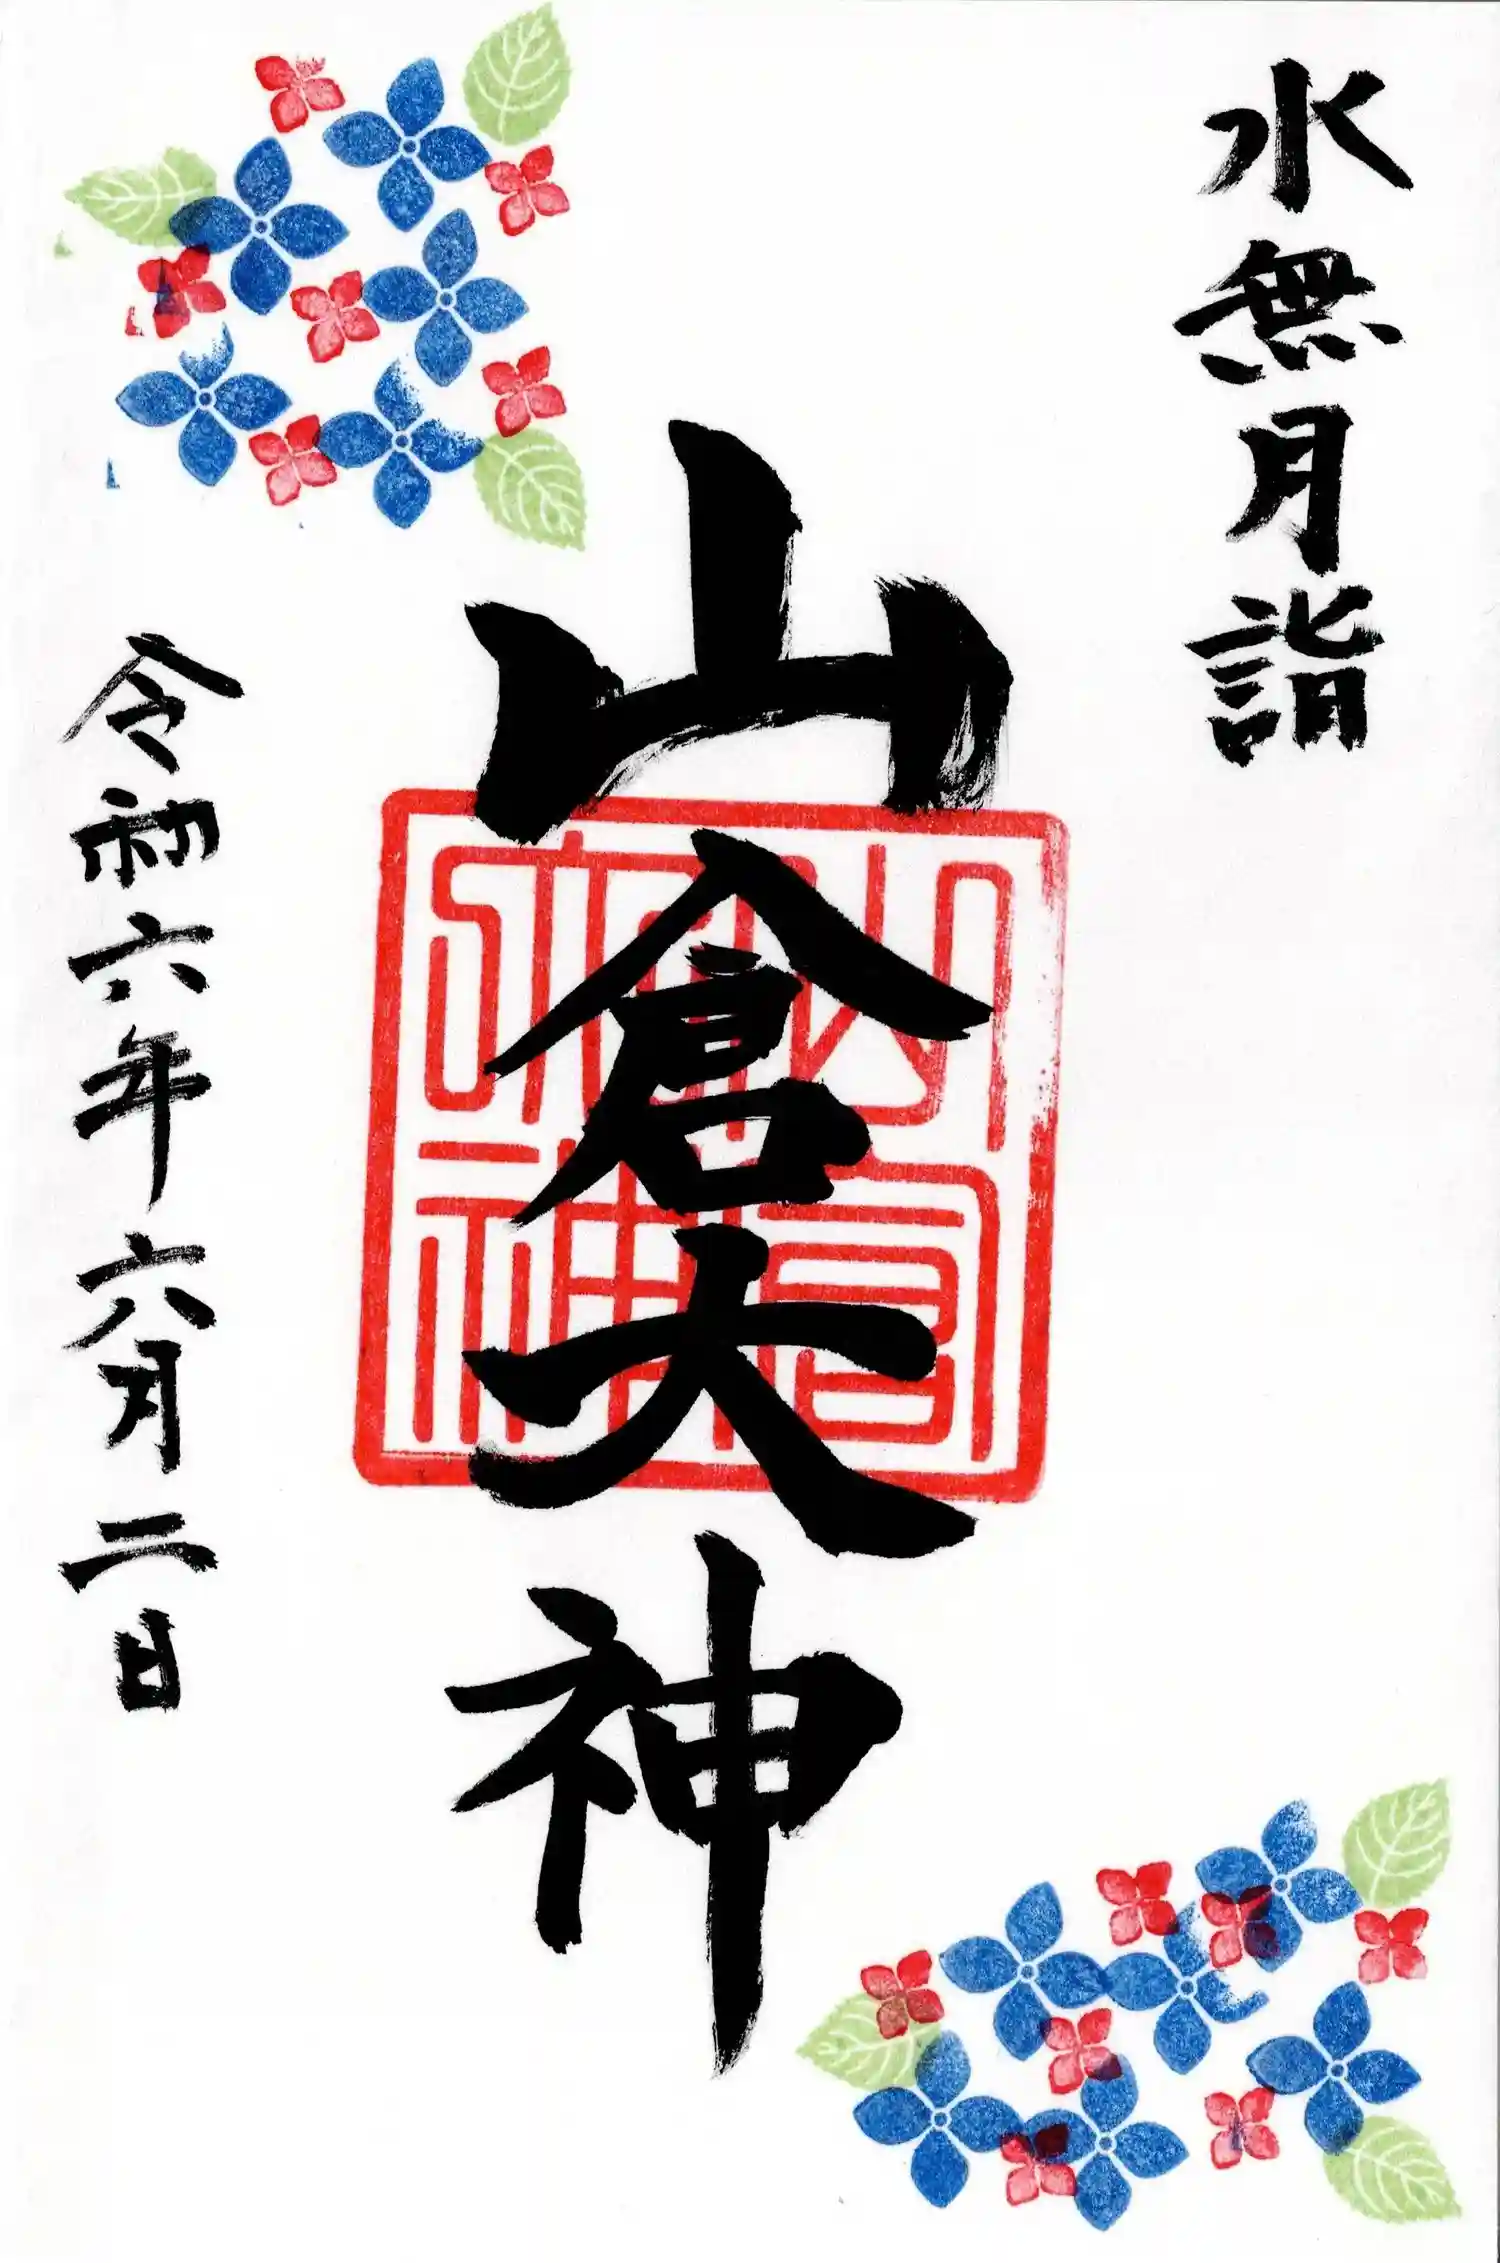 水無月詣
山倉大神
令和六年六月二日